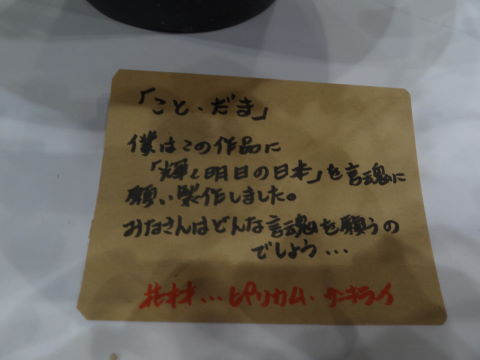 「こと、だま」
僕はこの作品に
「輝く明日の日本」を言魂に
願い製作しました。
みなさんはどんな言魂を願うの
でしょう...
花材...ヒペリカム・サンキライ